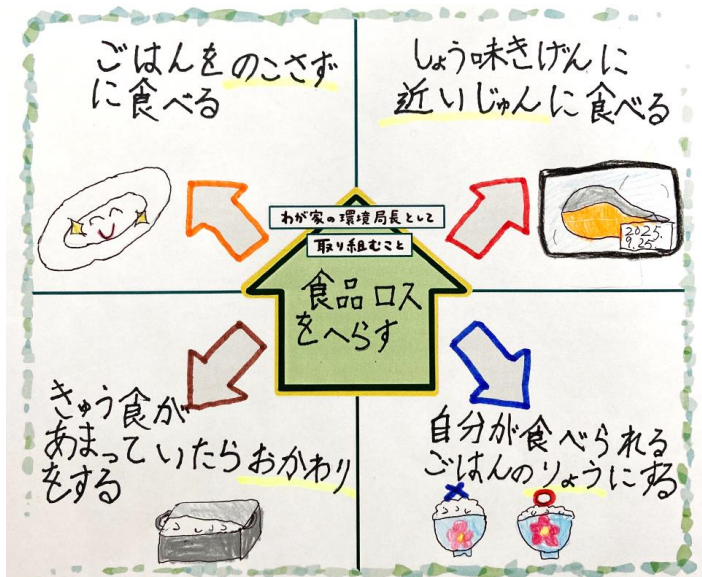 ごはんをのこさず
に食べる
しょう味きげんに
近いじゅんに食べる
わが家の環境局長として
取り組むこと
食品ロス
をへらす
2025.
9.25.
きゅう食が
あまっていたらおかわり
をする
自分が食べられる
ごはんのりょうにする